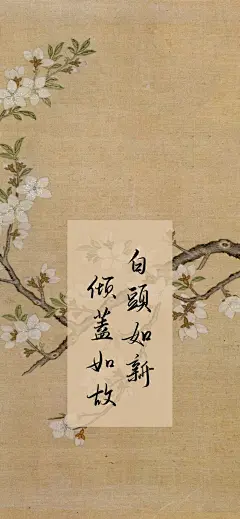 白頭如新
傾蓋如故